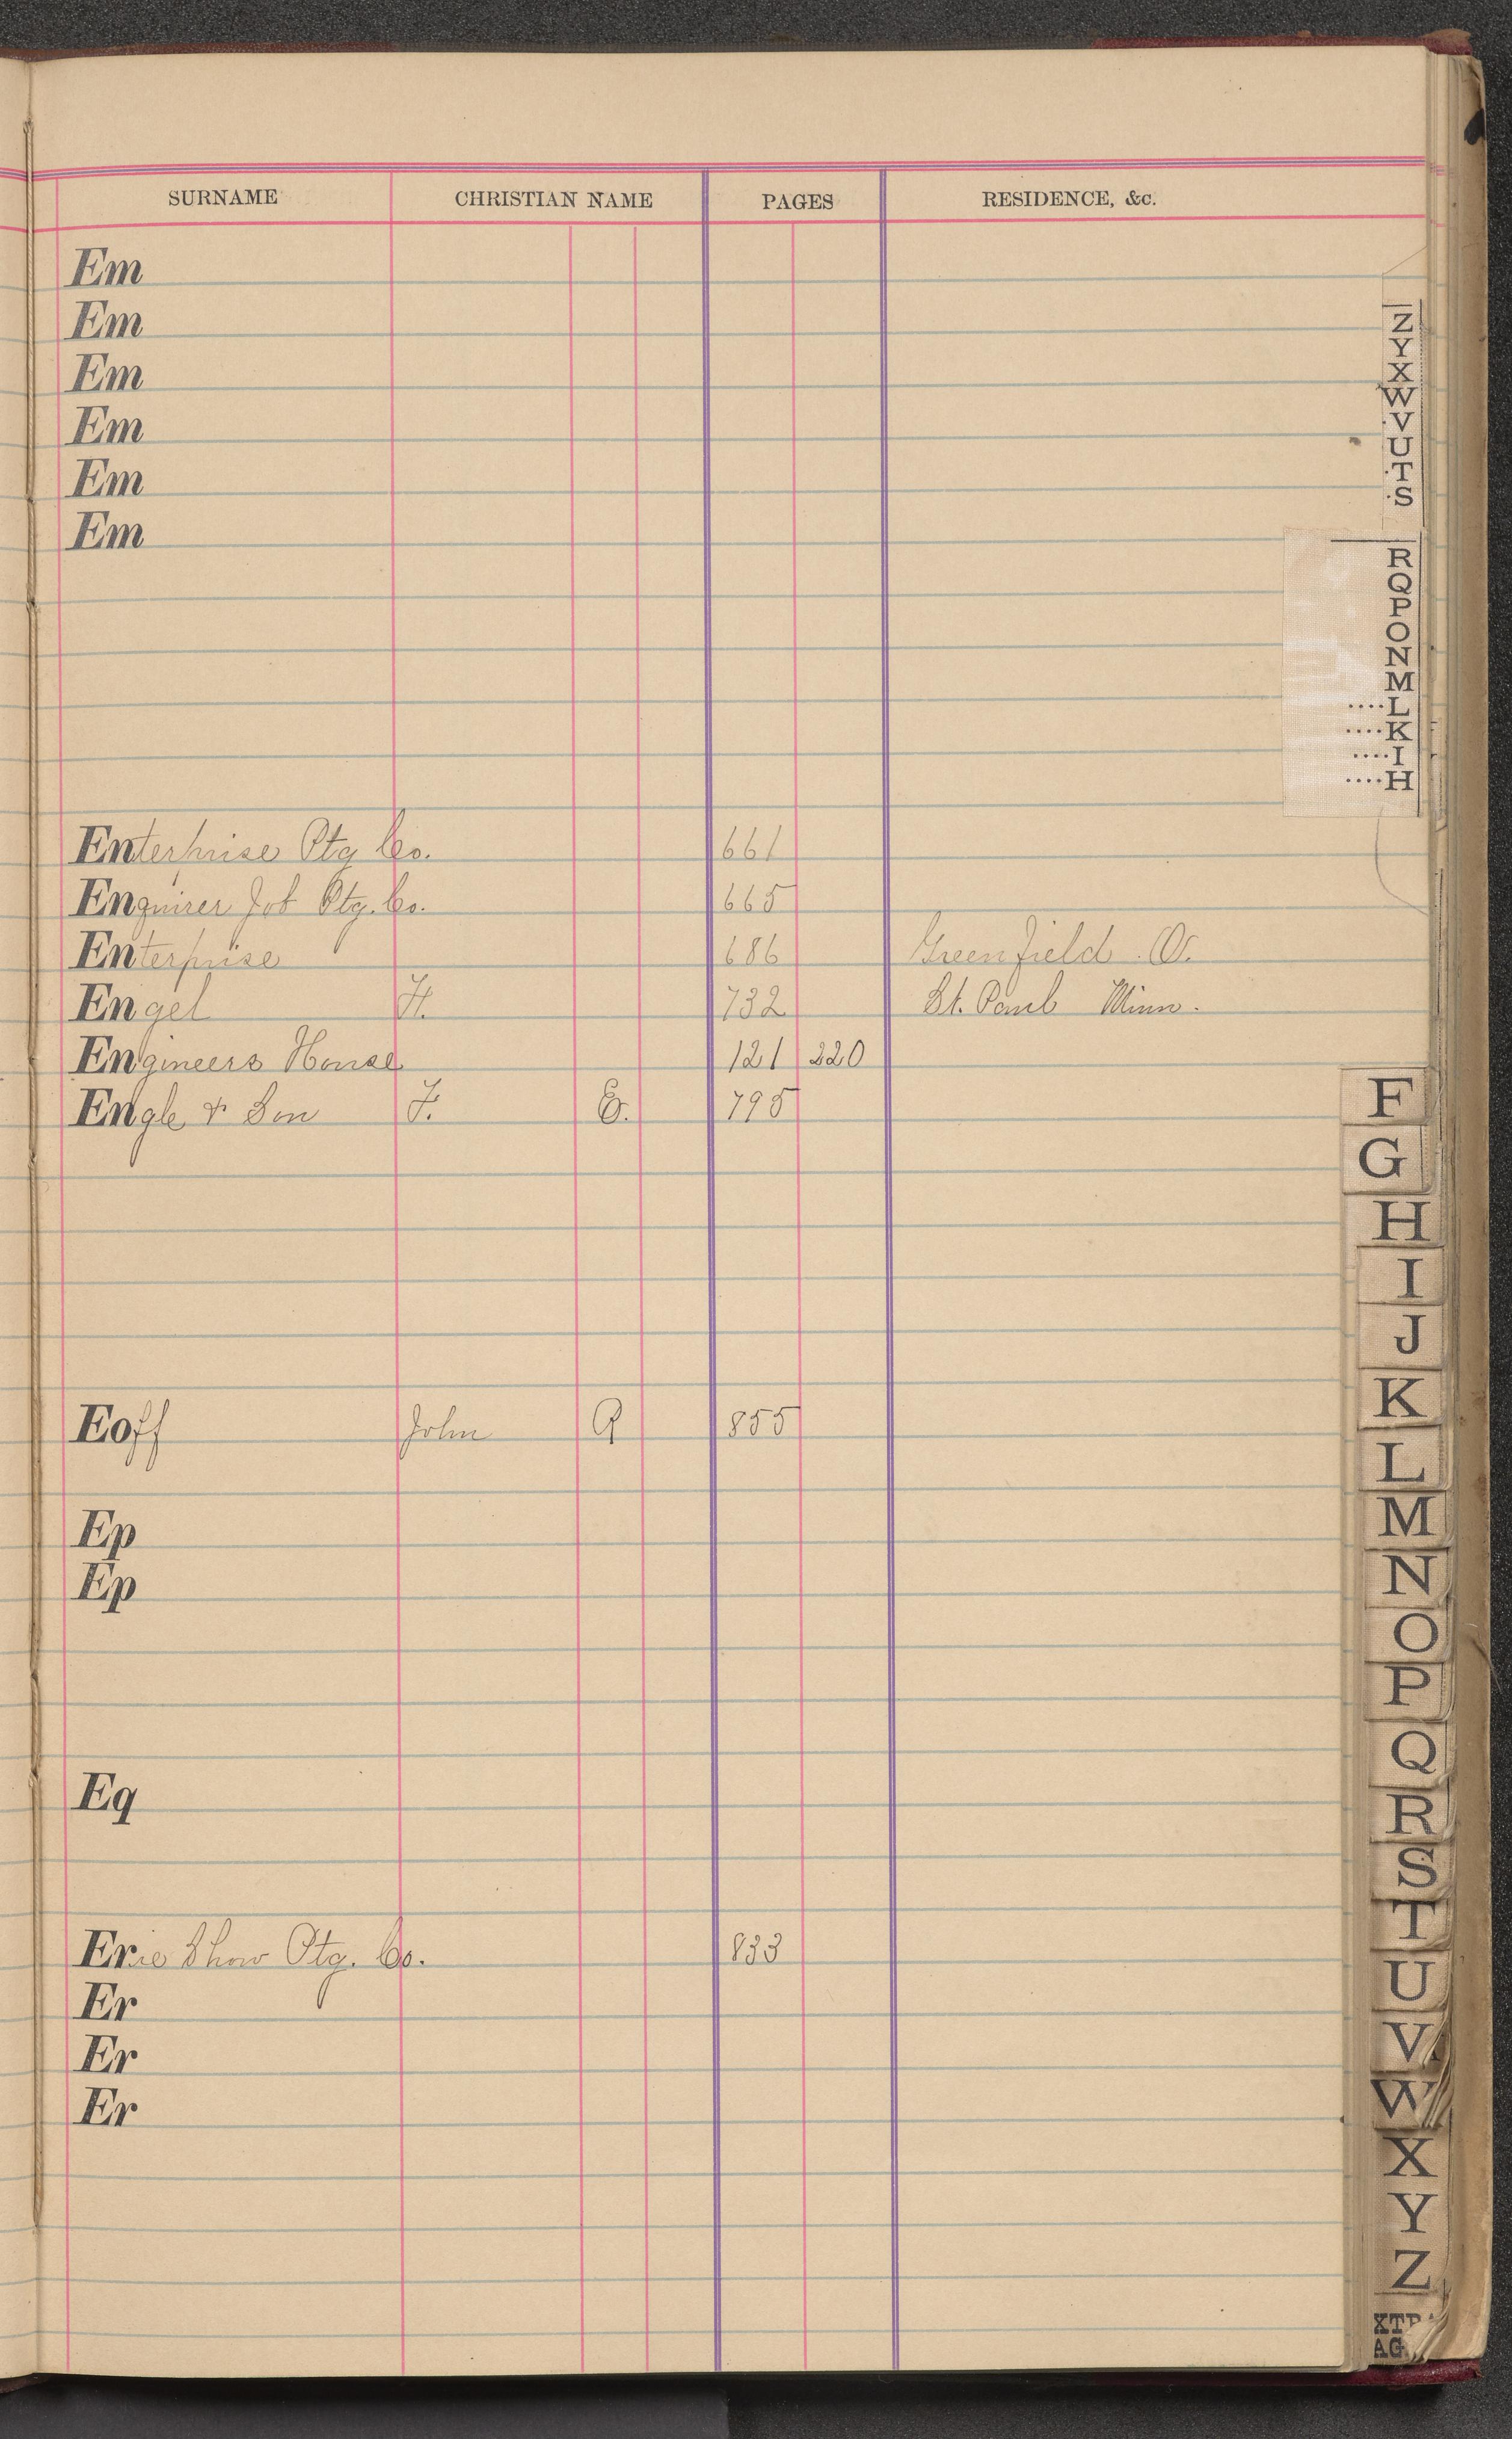 SURNAME CHRISTIAN NAME PAGES RESIDENCE, &c.
Em
Em
Em
Em
Em
Em
Enterprise Ptg Co. 661
Enquirer Job Ptg. Co. 665
Enterprise 686 Greenfield. O.
Engel H. 732 St. Paul Minn.
Engineers House 121 220
Engle & Son F. E. 795
Eoff John A 855
Ep
Ep
Eq
Erie Show Ptg. Co. 833
Er
Er
Er
Z
Y
X
W
V
U
T
S
R
Q
P
O
N
M
....L
....K
....I
....H
F
G
H
I
J
K
L
M
N
O
P
Q
R
S
T
U
V
W
X
Y
Z